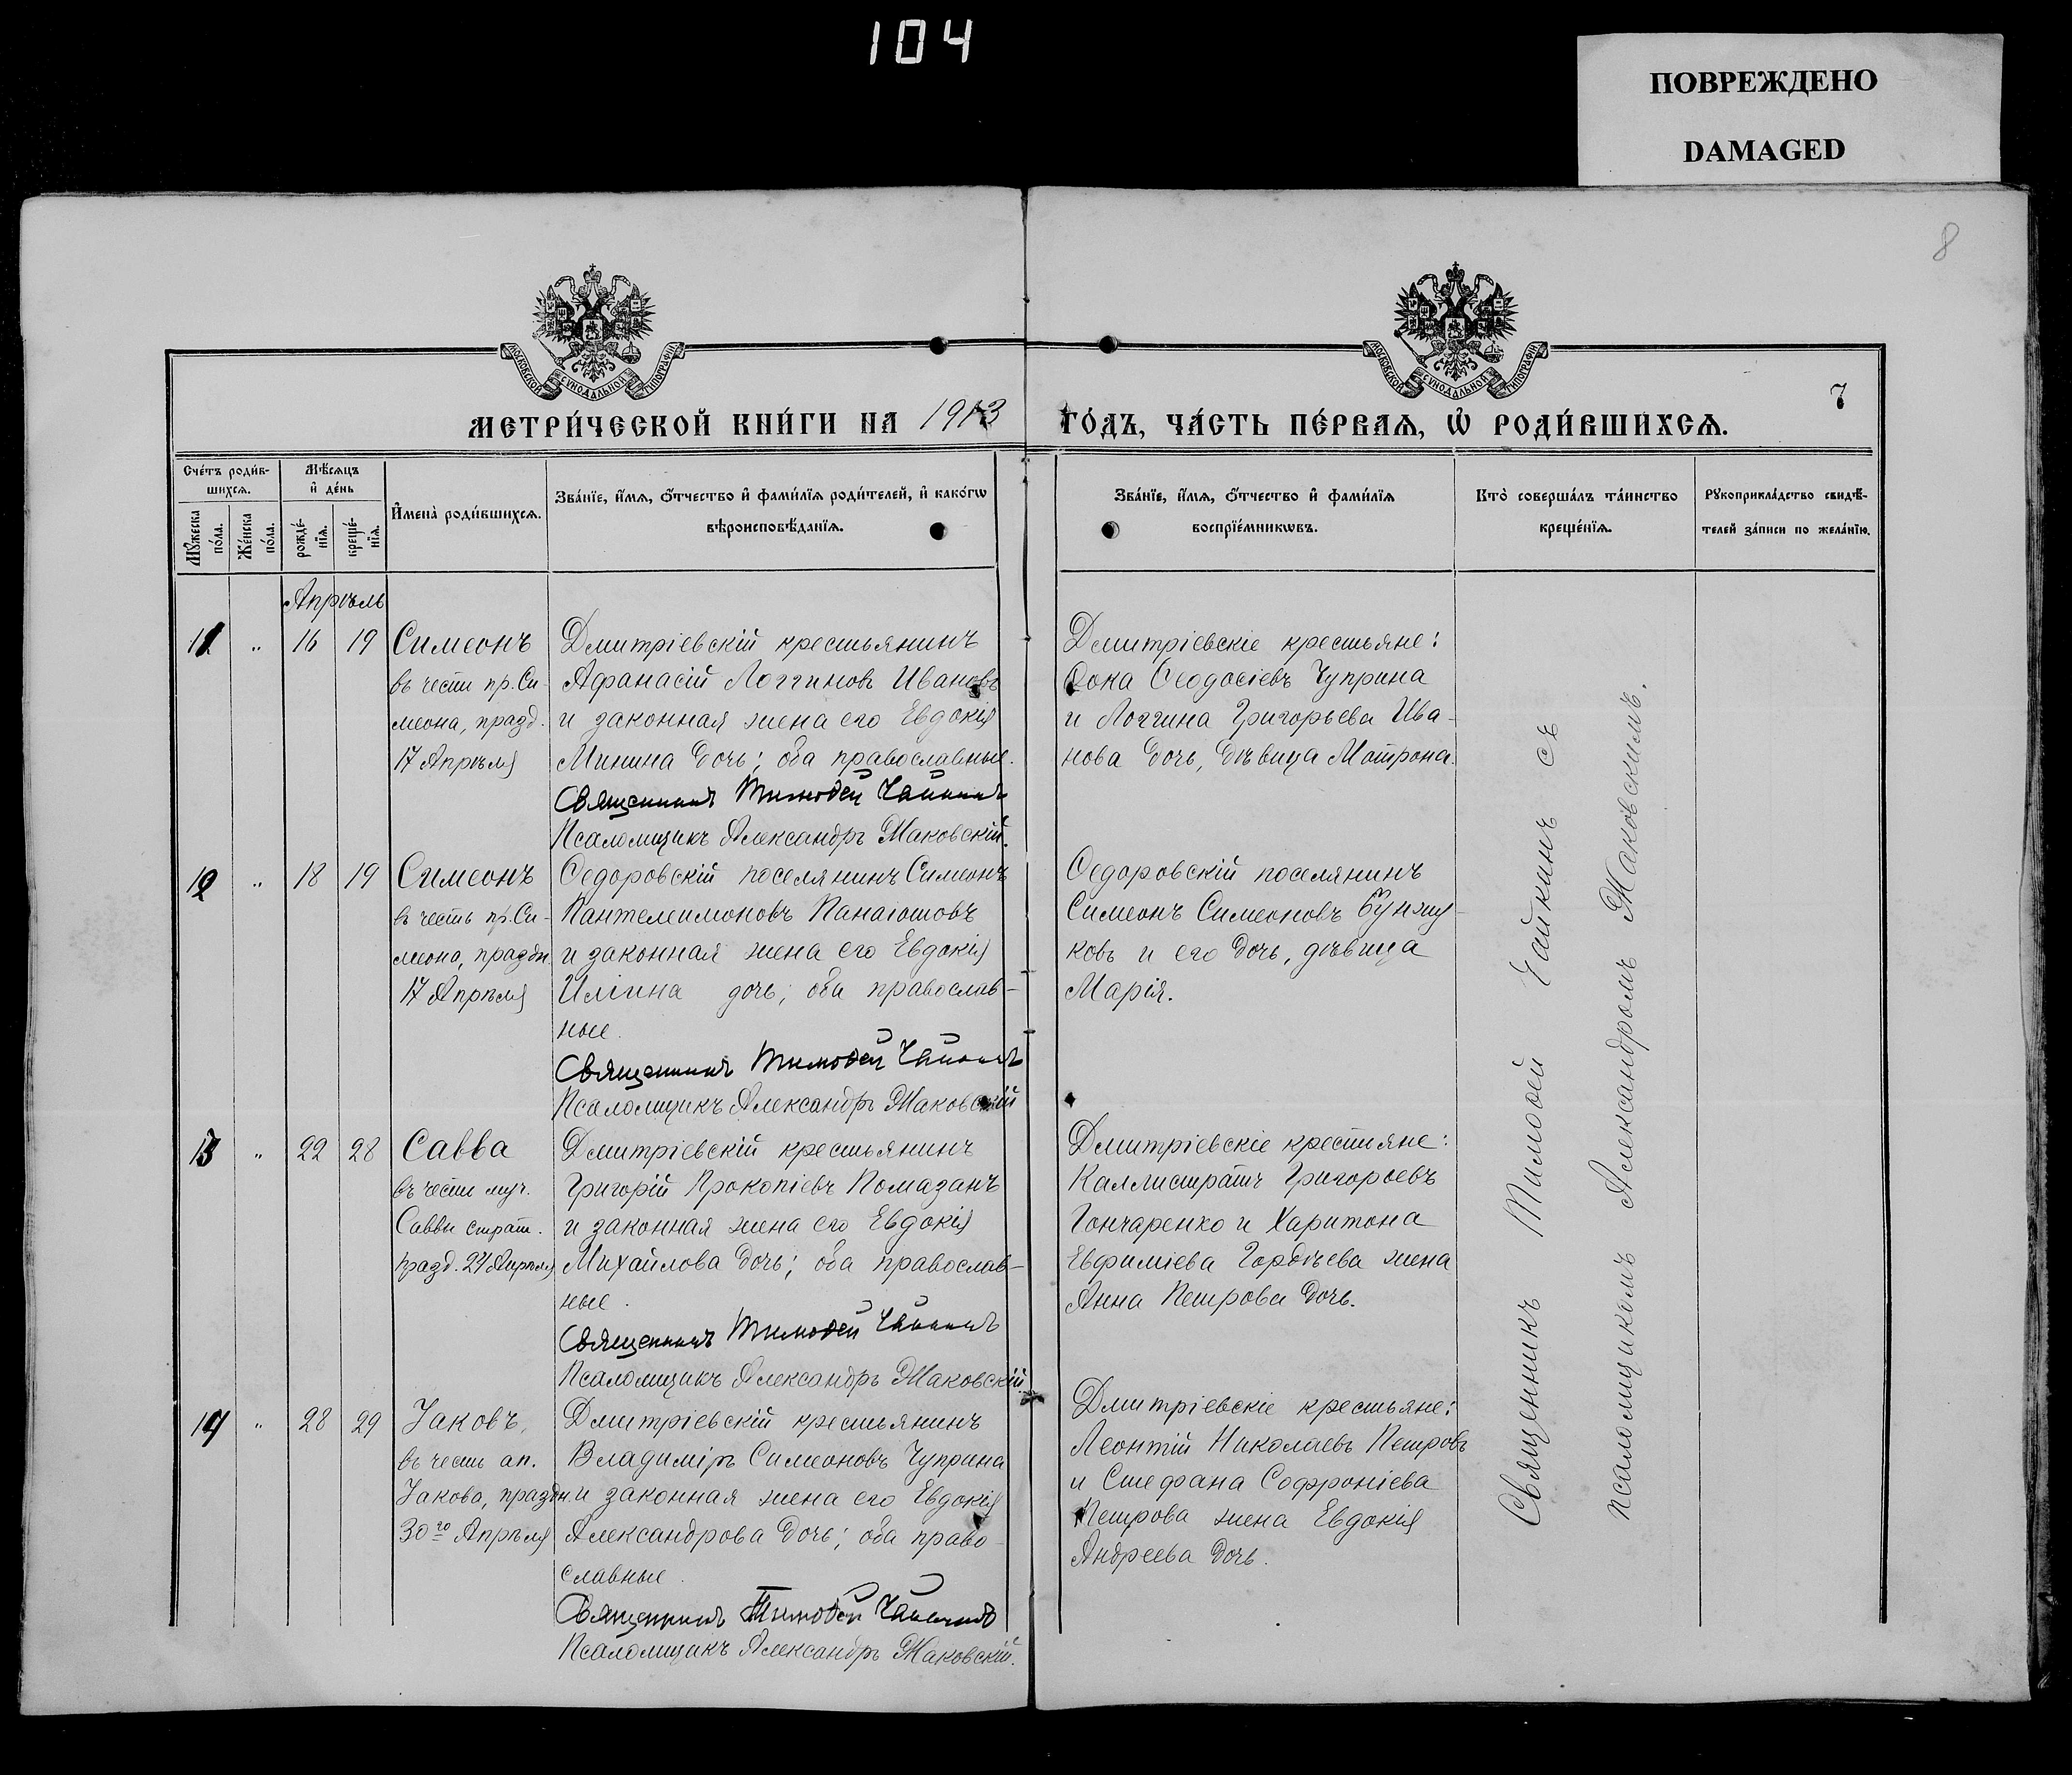 104
ПОВРЕЖДЕНО
DAMAGED
8
МОСКОВСКОЙ СѴНОДАЛЬНОЙ ТИПОГРАФІИ
МОСКОВСКОЙ СѴНОДАЛЬНОЙ ТИПОГРАФІИ
7
МЕТРИ́ЧЕСКОЙ КНИ́ГИ НА 1913 ГО́ДЪ, ЧА́СТЬ ПЕ́РВАѦ, Ѡ҆ РОДИ́ВШИХСѦ.
Сче́тъ роди́в-
шихсѧ.
Мꙋ́жеска по́ла.
Же́нска по́ла.
Мѣ́сѧцъ
и҆ де́нь
рожде́-
нїѧ.
креще́-
нїѧ.
И҆мена̀ роди́вшихсѧ.
Зва́нїе, и҆́мѧ, ѻ҆́тчество и҆ фами́лїѧ роди́телей, и҆ како́гѡ
вѣроисповѣ́данїѧ.
Зва́нїе, и҆́мѧ, ѻ҆́тчество и҆ фами́лїѧ
воспрїе́мникѡвъ.
Кто̀ соверша́лъ та́инство
креще́нїѧ.
Рꙋкоприкла́дство свидѣ́-
телей за́писи по жела́нїю.
Апрѣль
11 „ 16 19 Симеонъ
въ честь пр. Си-
меона, празд.
17 Апрѣля
Дмитріевскій крестьянинъ
Афанасій Логгиновъ Ивановъ
и законная жена его Евдокія
Минина дочь; оба православные.
Священникъ Тимоѳей Чайкинъ
Псаломщикъ Александръ Маковскій.
Дмитріевскіе крестьяне:
Ѳока Ѳеодосіевъ Чуприна
и Логгина Григорьева Ива-
нова дочь, дѣвица Матрона.
12 „ 18 19 Симеонъ
въ честь пр. Си-
меона, праздн.
17 Апрѣля
Ѳедоровскій поселянинъ Симеонъ
Пантелеимоновъ Панаіотовъ
и законная жена его Евдокія
Иліина дочь; оба православ-
ные.
Священникъ Тимоѳей Чайкинъ
Псаломщикъ Александръ Маковскій
Ѳедоровскій поселянинъ
Симеонъ Симеоновъ Бунжу-
ковъ и его дочь, дѣвица
Марія.
13 „ 22 28 Савва
въ честь муч.
Саввы страт.
празд. 24 Апрѣля
Дмитріевскій крестьянинъ
Григорій Прокопіевъ Помазанъ
и законная жена его Евдокія
Михайлова дочь; оба православ-
ные.
Священникъ Тимоѳей Чайкинъ
Псаломщикъ Александръ Маковскій.
Дмитріевскіе крестьяне:
Каллистратъ Григорьевъ
Гончаренко и Харитона
Евфиміева Гордѣева жена
Анна Петрова дочь.
14 „ 28 29 Іаковъ,
въ честь ап.
Іакова, праздн.
30го Апрѣля
Дмитріевскій крестьянинъ
Владиміръ Симеоновъ Чуприна
и законная жена его Евдокія
Александрова дочь; оба право-
славные.
Священникъ Тимоѳей Чайкинъ
Псаломщикъ Александръ Маковскій.
Дмитріевскіе крестьяне:
Леонтій Николаевъ Петровъ
и Стефана Софроніева
Петрова жена Евдокія
Андреева дочь.
Священникъ Тимоѳей Чайкинъ съ
псаломщикомъ Александромъ Маковскимъ.